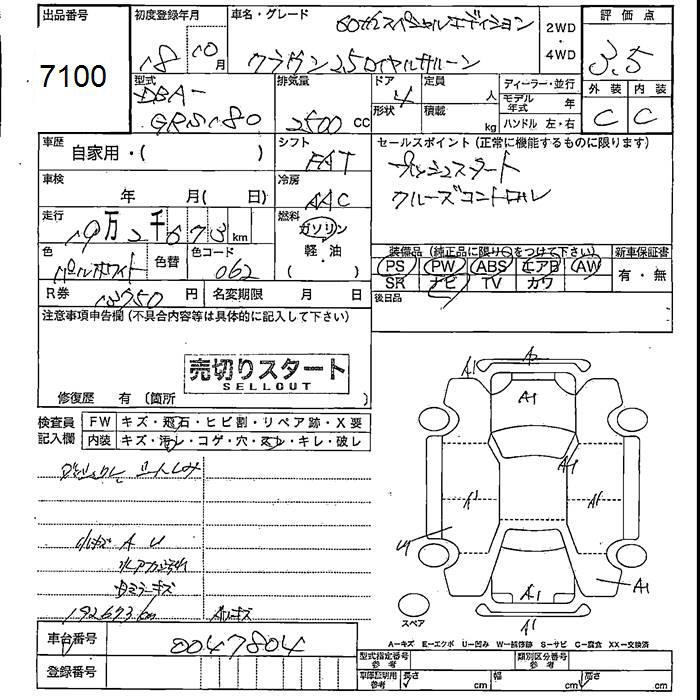 出品番号
7100
初度登録年月
18 10 月
車名・グレード
60thスペシャルエディション
クラウン 2.5ロイヤルサルーン
2WD
・
4WD
評価点
3.5
外装 内装
C C
型式
DBA-
GRS180
排気量
2500 cc
ドア
4
形状
定員
人
積載
kg
ディーラー・並行
モデル年式 年
ハンドル 左・右
車歴
自家用・( )
シフト
FAT
セールスポイント (正常に機能するものに限ります)
プッシュスタート
クルーズコントロール
車検
年 月( 日)
冷房
AAC
走行
19万2千673km
燃料
ガソリン
軽・油
・( )
色
パールホワイト
色替
色コード
062
装備品 (純正品に限り○をつけて下さい)
PS PW ABS エアB AW
SR ナビ TV カワ
新車保証書
有・無
R券
円
名変期限 月 日
後日品
注意事項申告欄 (不具合内容等は具体的に記入して下さい)
売切りスタート
SELLOUT
修復歴 有 (箇所 )
検査員
記入欄
FW キズ・飛石・ヒビ割・リペア跡・X要
内装 キズ・汚レ・コゲ・穴・スレ・キレ・破レ
A U
192673km
A1
A1
A1
A1
A1
A1
A1
スペア
A1
A-キズ E-エクボ U-凹み W-補修跡 S-サビ C-腐食 XX-交換済
車台番号
0047804
登録番号
型式指定番号
参考
類別区分番号
参考
車庫証明用
参考
長さ cm 幅 cm 高さ cm